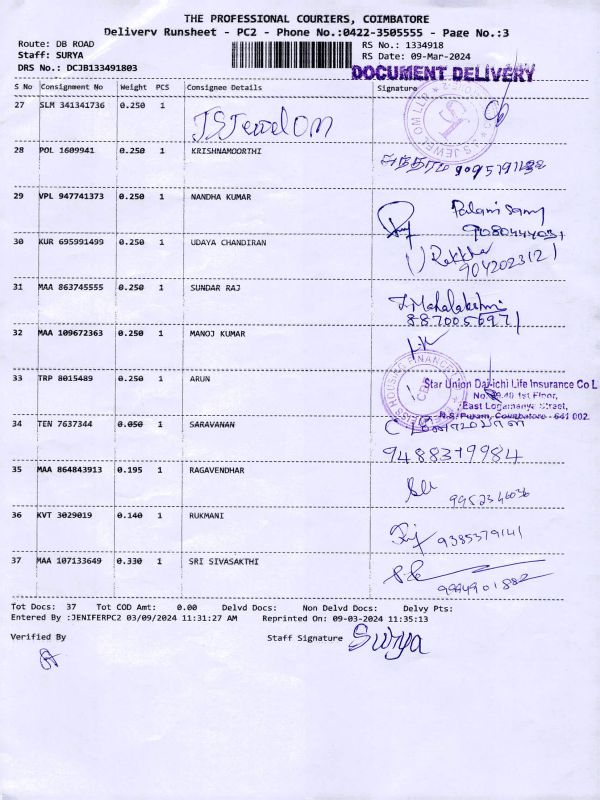 THE PROFESSIONAL COURIERS, COIMBATORE
Delivery Runsheet - PC2 - Phone No.:0422-3505555 - Page No.:3
Route: DB ROAD
RS No.: 1334918
Staff: SURYA
RS Date: 09-Mar-2024
DRS No.: DCJB133491803
DOCUMENT DELIVERY
S No Consignment No Weight PCS Consignee Details Signature
27 SLM 341341736 0.250 1 JS Jewel OM
28 POL 1609941 0.250 1 KRISHNAMOORTHI
29 VPL 947741373 0.250 1 NANDHA KUMAR Palani Samy
9080444031
30 KUR 695991499 0.250 1 UDAYA CHANDIRAN Rekkha
9042023121
31 MAA 863745555 0.250 1 SUNDAR RAJ J. Mahalakshmi
8870056971
32 MAA 109672363 0.250 1 MANOJ KUMAR
33 TRP 8015489 0.250 1 ARUN
Star Union Dai-ichi Life Insurance Co L
1st Floor,
East Logamanya Street,
R.S. Puram, Coimbatore - 641 002.
34 TEN 7637344 0.050 1 SARAVANAN
9488379984
35 MAA 864843913 0.195 1 RAGAVENDHAR
9952346036
36 KVT 3029019 0.140 1 RUKMANI 9385379141
37 MAA 107133649 0.330 1 SRI SIVASAKTHI
9994901882
Tot Docs: 37 Tot COD Amt: 0.00 Delvd Docs: Non Delvd Docs: Delvy Pts:
Entered By :JENIFERPC2 03/09/2024 11:31:27 AM Reprinted On: 09-03-2024 11:35:13
Verified By Staff Signature Surya